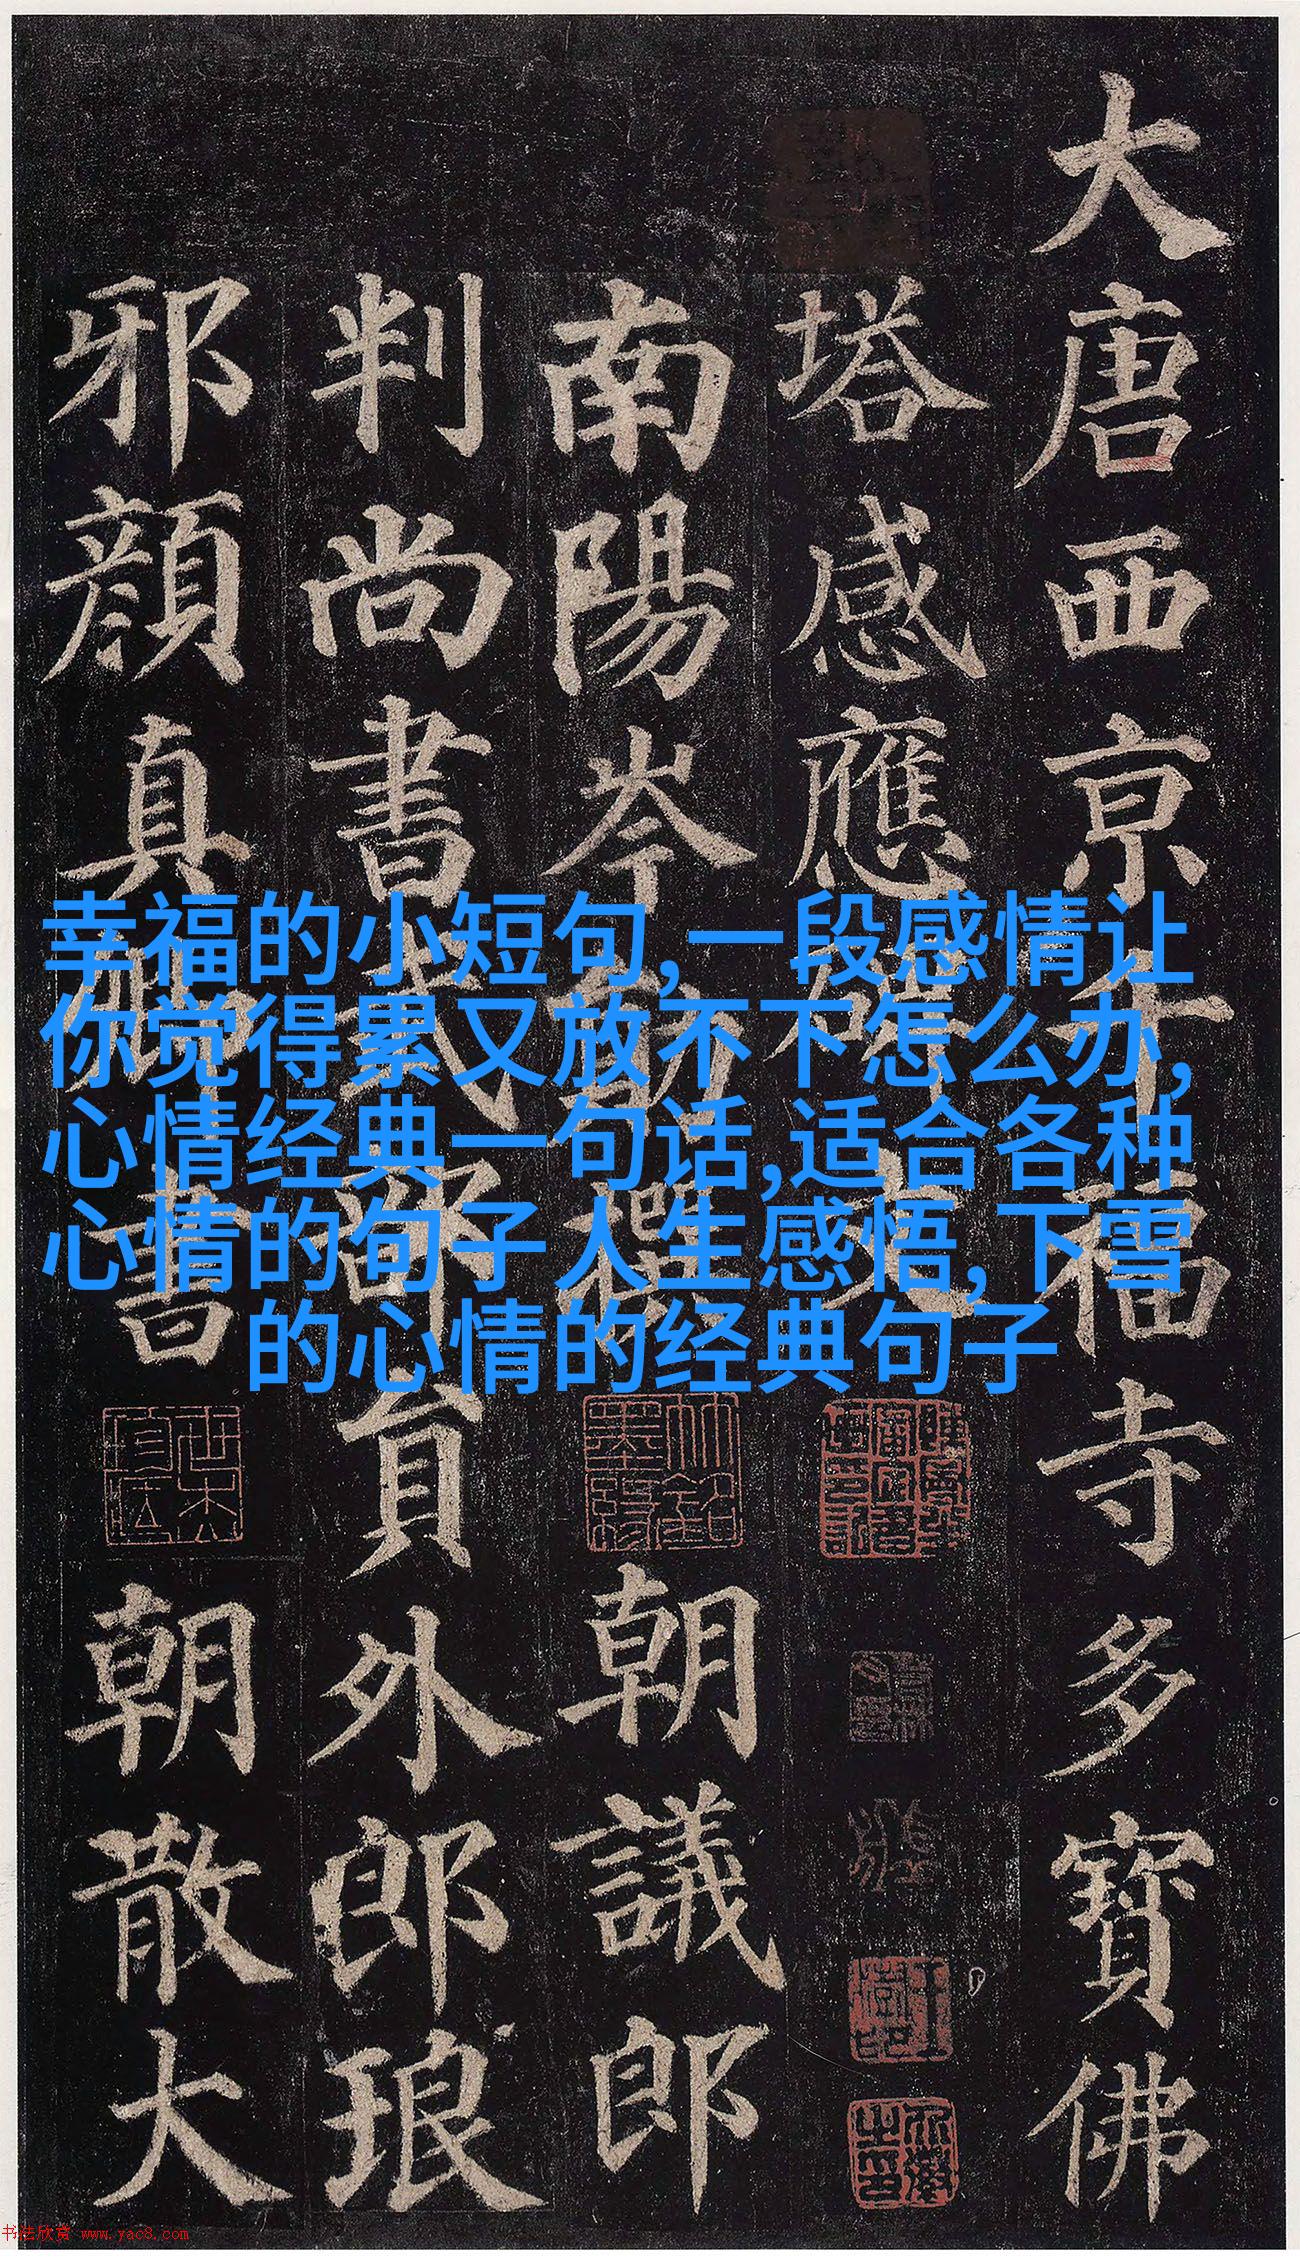 大唐西京千福寺多寶佛
塔感應碑文
南陽岑勛撰 朝議郎
判尚書武部員外郎琅
邪顏真卿書 朝散大
幸福的小短句,一段感情让
你觉得累又放不下怎么办,
心情经典一句话,适合各种
心情的句子人生感悟,下雪
的心情的经典句子
书法欣赏 www.yac8.com